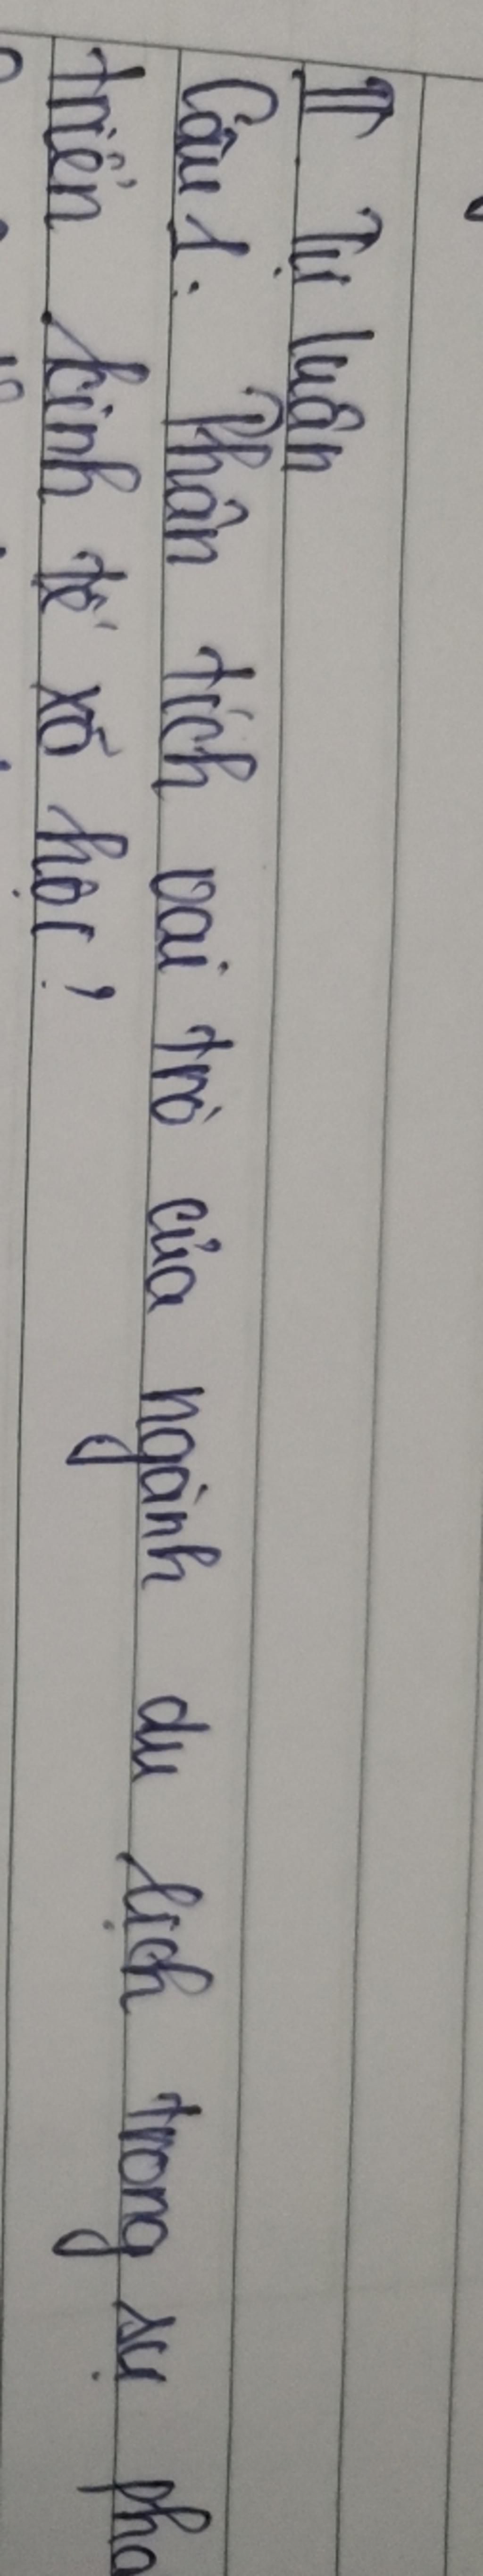 II Tự luận
Câu 1: Phân tích vai trò của ngành du lịch trong sự phá
triển kinh tế xã hội?